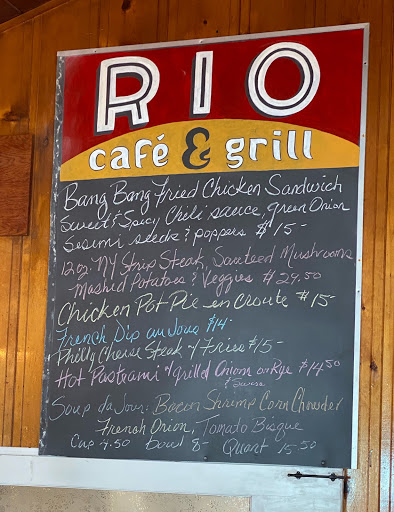 RIO
café & grill
Bang Bang Fried Chicken Sandwich
Sweet & Spicy Chili sauce, Green Onion
Sesumi seeds & poppers $15-
12oz. NY Strip Steak, Sauteed Mushrooms
Mashed Potatoes & Veggies $24.50
Chicken Pot Pie en Croute $15-
French Dip au Jous $14-
Philly Cheese Steak w/ Fries $15-
Hot Pastrami w/ grilled Onion on Rye $14.50
Soup du Jour: Bacon Shrimp Corn Chowder
French Onion, Tomato Bisque
Cup 4.50 bowl 8- Quart 15.50